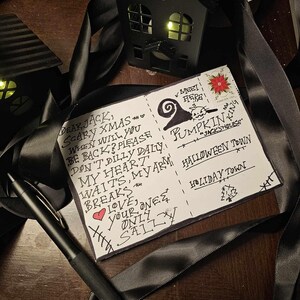 DEAR JACK,
SCARY XMAS
WHEN WILL YOU
BE BACK? PLEASE
DON'T DILLY DALLY.
MY HEART
WAITS, MY ARM
BREAKS.
LOVE,
YOUR ONE &
ONLY
SALLY
HERE
PUMPKIN
HALLOWEEN TOWN
HOLIDAY TOWN